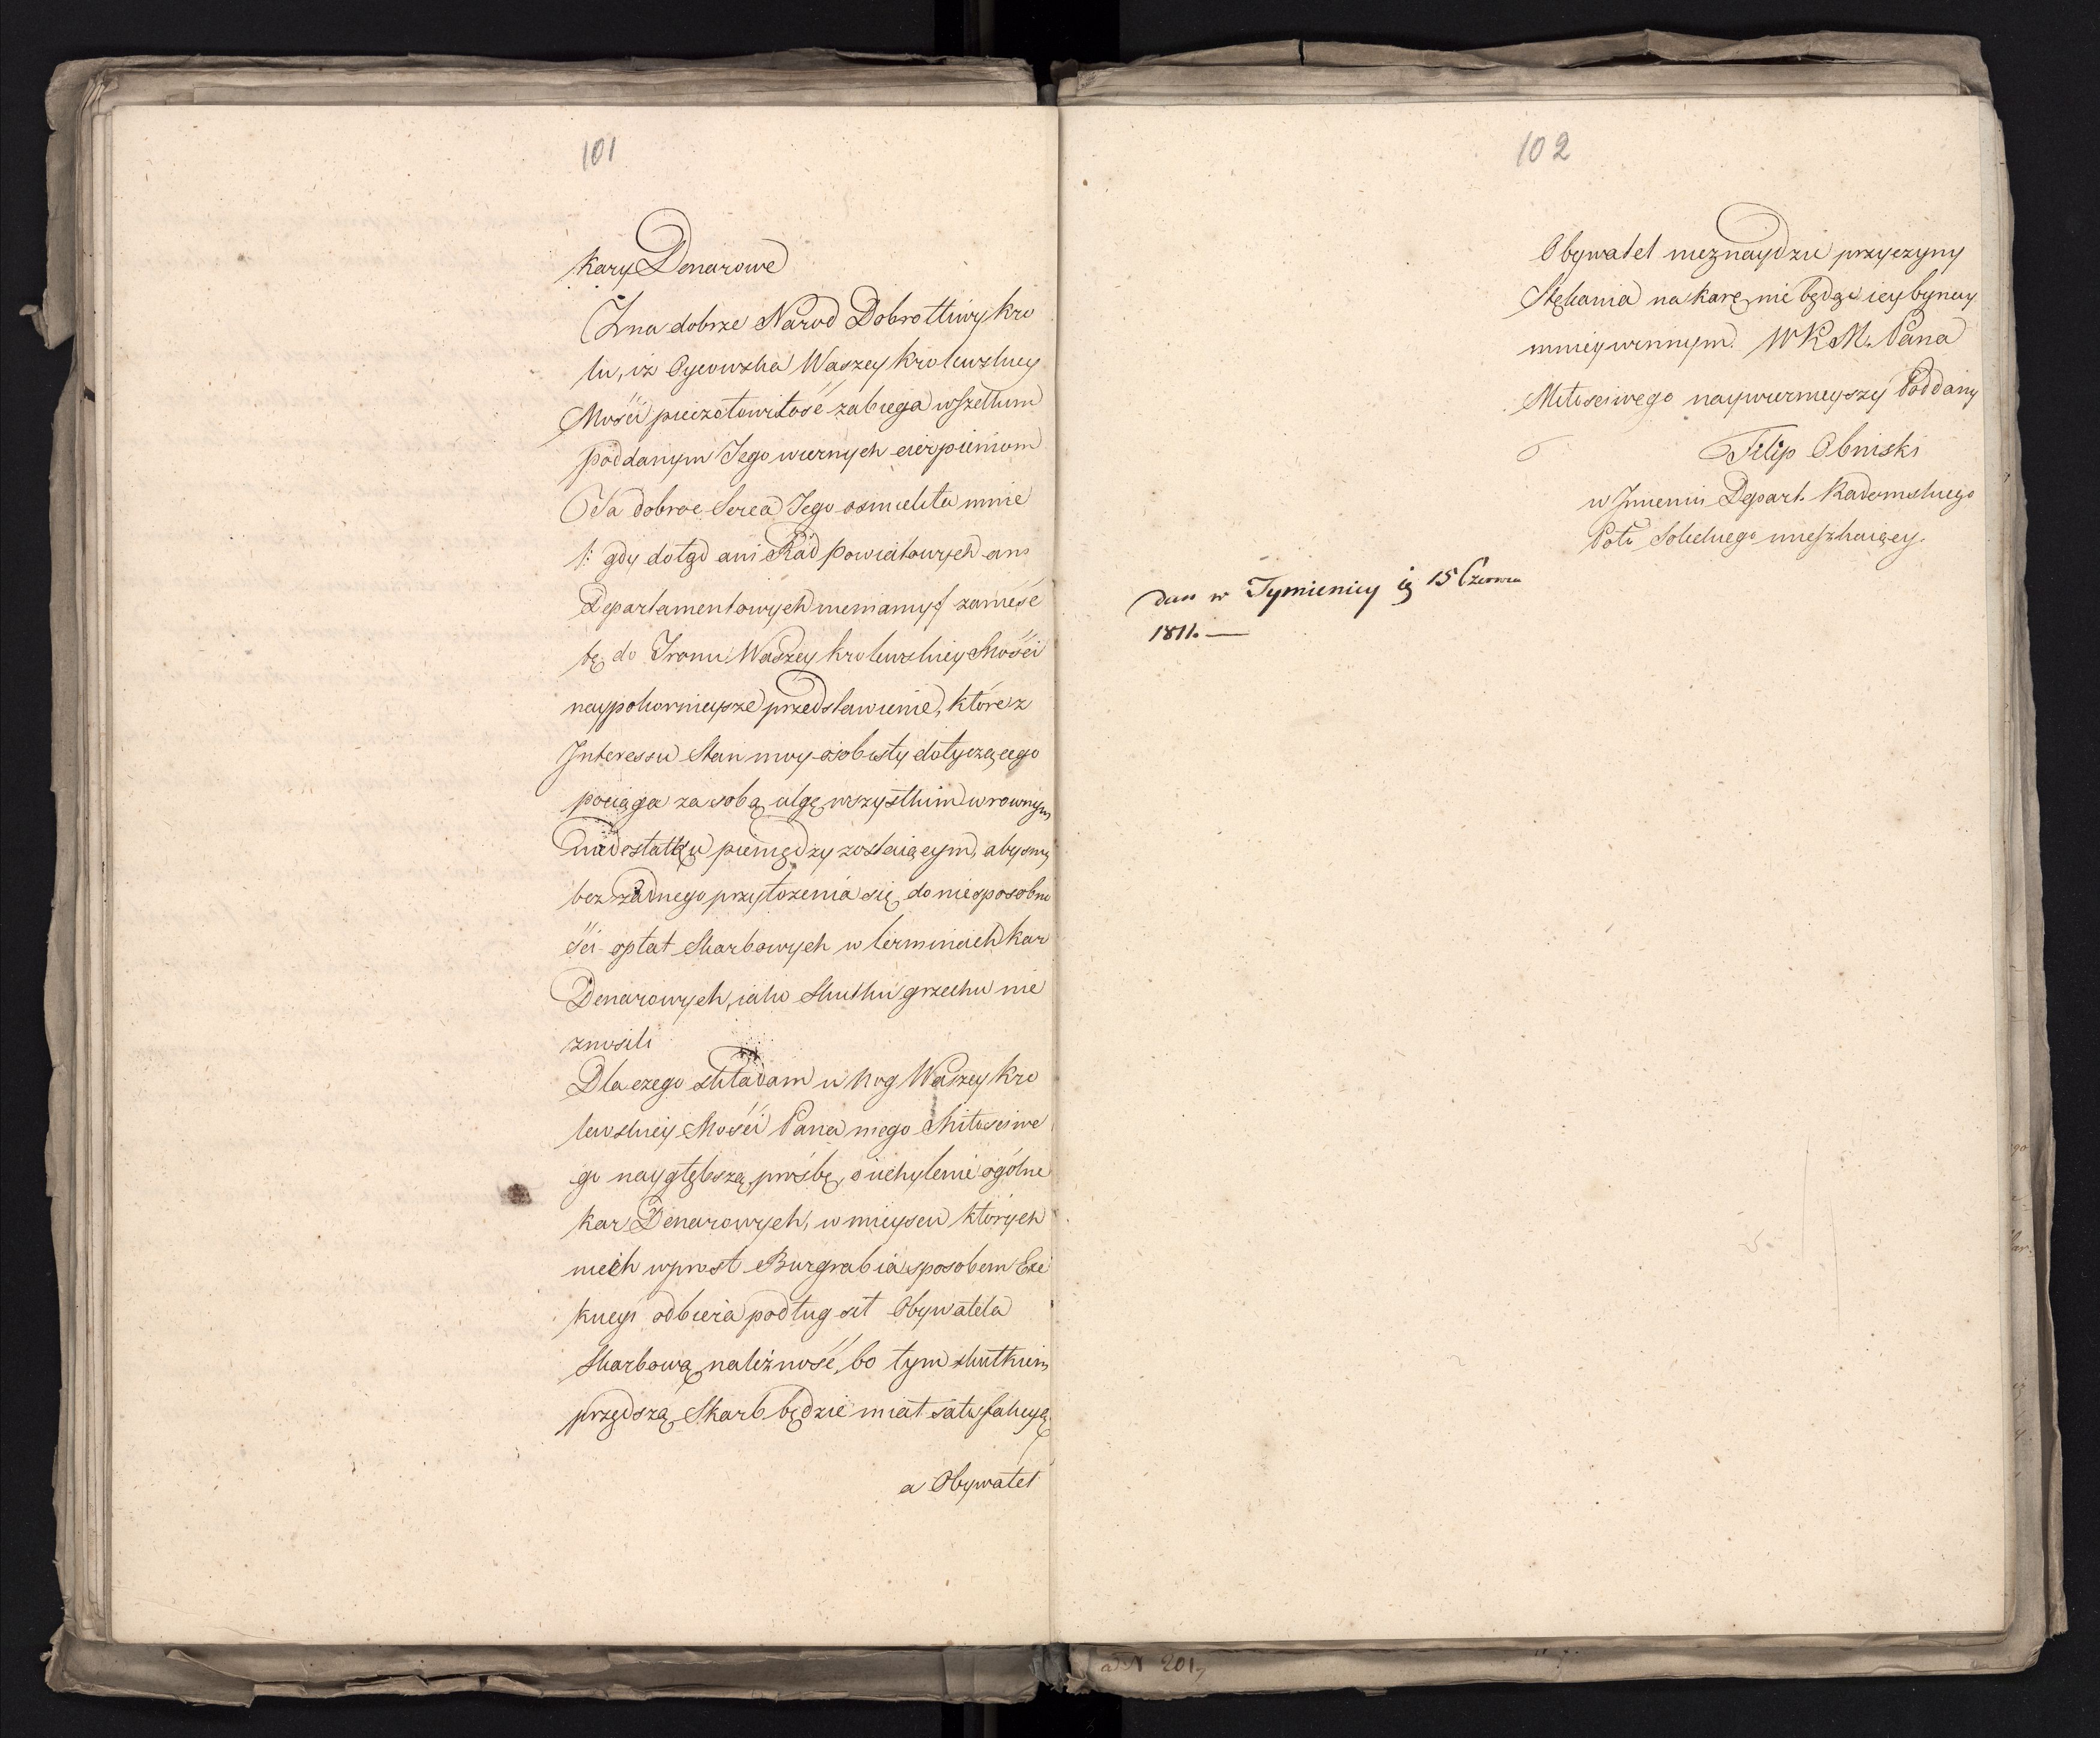 101
kary Denarowe
Zna dobrze Narod Dobrotliwy Kro
lu, iż Oycowska Waszey Krolewskiey
Mości pieczołowitość zabiega wszelkim
poddanym Jego wiernych cierpieniom
Ta dobroc Serca Jego osmieliła mnie
/: gdy dotąd ani Rad Powiatowych ani
Departamentowych niemamy :/ zanieśc
tę do Tronu Waszey Krolewskiey Mości
naypokornieysze przedstawienie, które z
Interessu Stan moy osobisty dotyczącego
pociąga za sobą ulgę wszystkim w rownym
niedostatku pieniędzy zostaiącym, abysmy
bez żadnego przyłożenia się do niesposobno
ści opłat Skarbowych w terminach kar
Denarowych, iako skutku grzechu nie
znosili
Dla czego składam u nog Waszey Kro
lewskiey Mości Pana mego Miłosciwe
go naygłębszą prośbę, o uchylenie ogólne
kar Denarowych, w mieyscu których
niech wprost Burgrabia sposobem Exe
kucyi odbiera podług sił Obywatela
Skarbową należność, bo tym skutkiem
prędszą Skarb będzie miał satysfakcyą
a Obywatel
102
Obywatel nieznaydzie przyczyny
Stękania na karę nie będąc iey bynay
mniey winnym. W K M. Pana
Miłosciwego naywiernieyszy Poddany
Filip Obniski
w Imieniu Depart. Radomskiego
Pottu Soleckiego mieszkaiący.
dan w Tymienicy 15 Czerwca
1811. —
ad N 201,